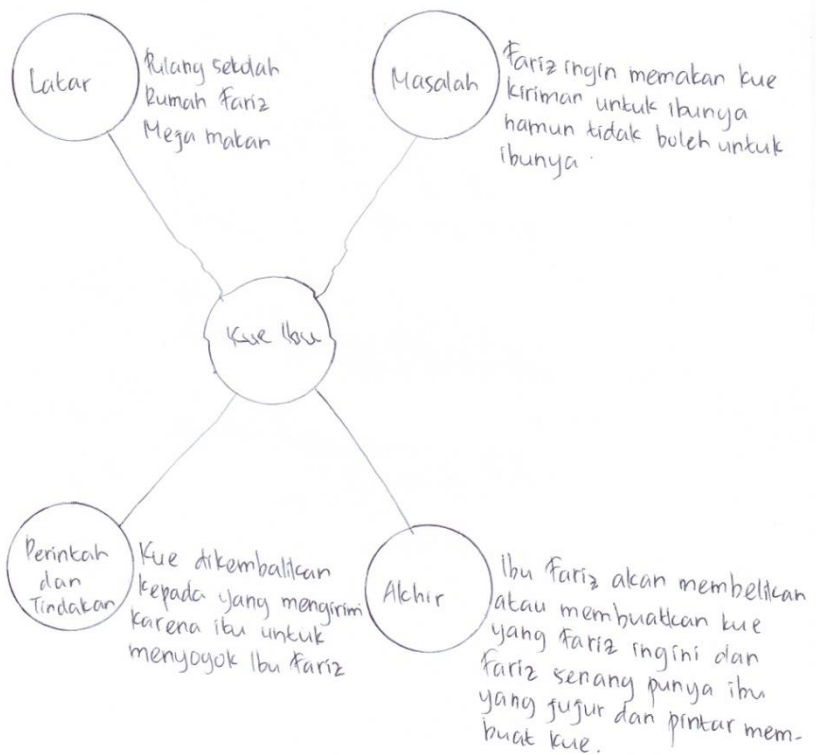 Latar
Pulang sekolah
Rumah Fariz
Meja makan
Masalah
Fariz ingin memakan kue
kiriman untuk ibunya
namun tidak boleh untuk
ibunya.
Kue Ibu
Perintah
dan
Tindakan
Kue dikembalikan
kepada yang mengirim
karena itu untuk
menyogok Ibu Fariz
Akhir
Ibu Fariz akan membelikan
atau membuatkan kue
yang Fariz ingini dan
Fariz senang punya ibu
yang jujur dan pintar mem-
buat kue.